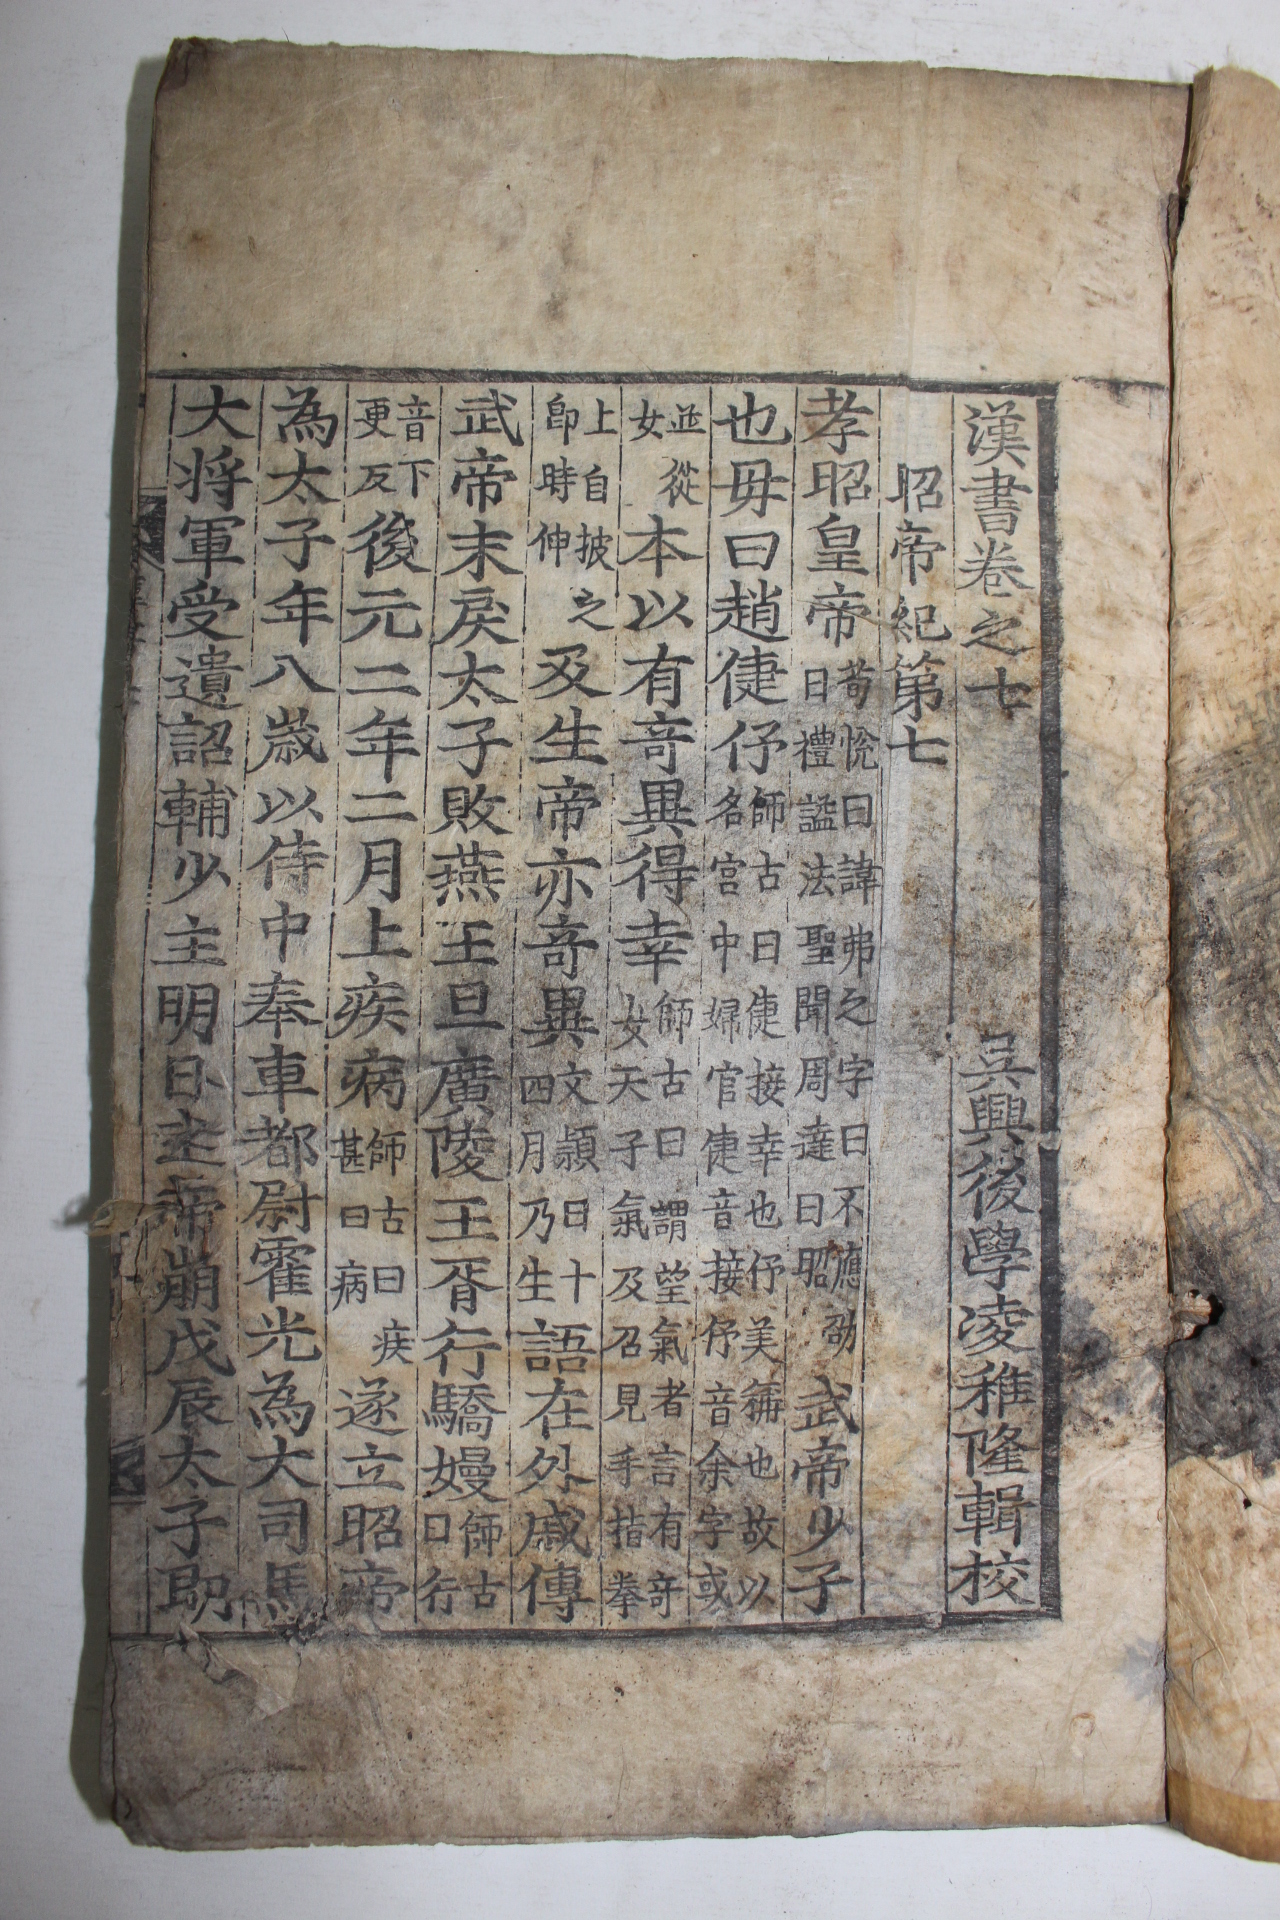 漢書卷之七 吳興後學凌稚隆輯校
昭帝紀第七
孝昭皇帝荀悅曰諱弗之字曰不應劭曰禮謚法聖聞周達曰昭武帝少子
也毋曰趙倢伃師古曰倢接幸也伃美稱也故以名宮中婦官倢音接伃音余字或並從女
本以有竒異得幸師古曰謂望氣者言有竒女天子氣及召見手指拳上自披之即時伸
及生帝亦竒異文穎曰十四月乃生語在外戚傳
武帝末戾太子敗燕王旦廣陵王胥行驕嫚師古曰行音下更反
後元二年二月上疾病師古曰疾甚曰病遂立昭帝
為太子年八歲以侍中奉車都尉霍光為大司馬
大將軍受遺詔輔少主明日武帝崩戊辰太子即